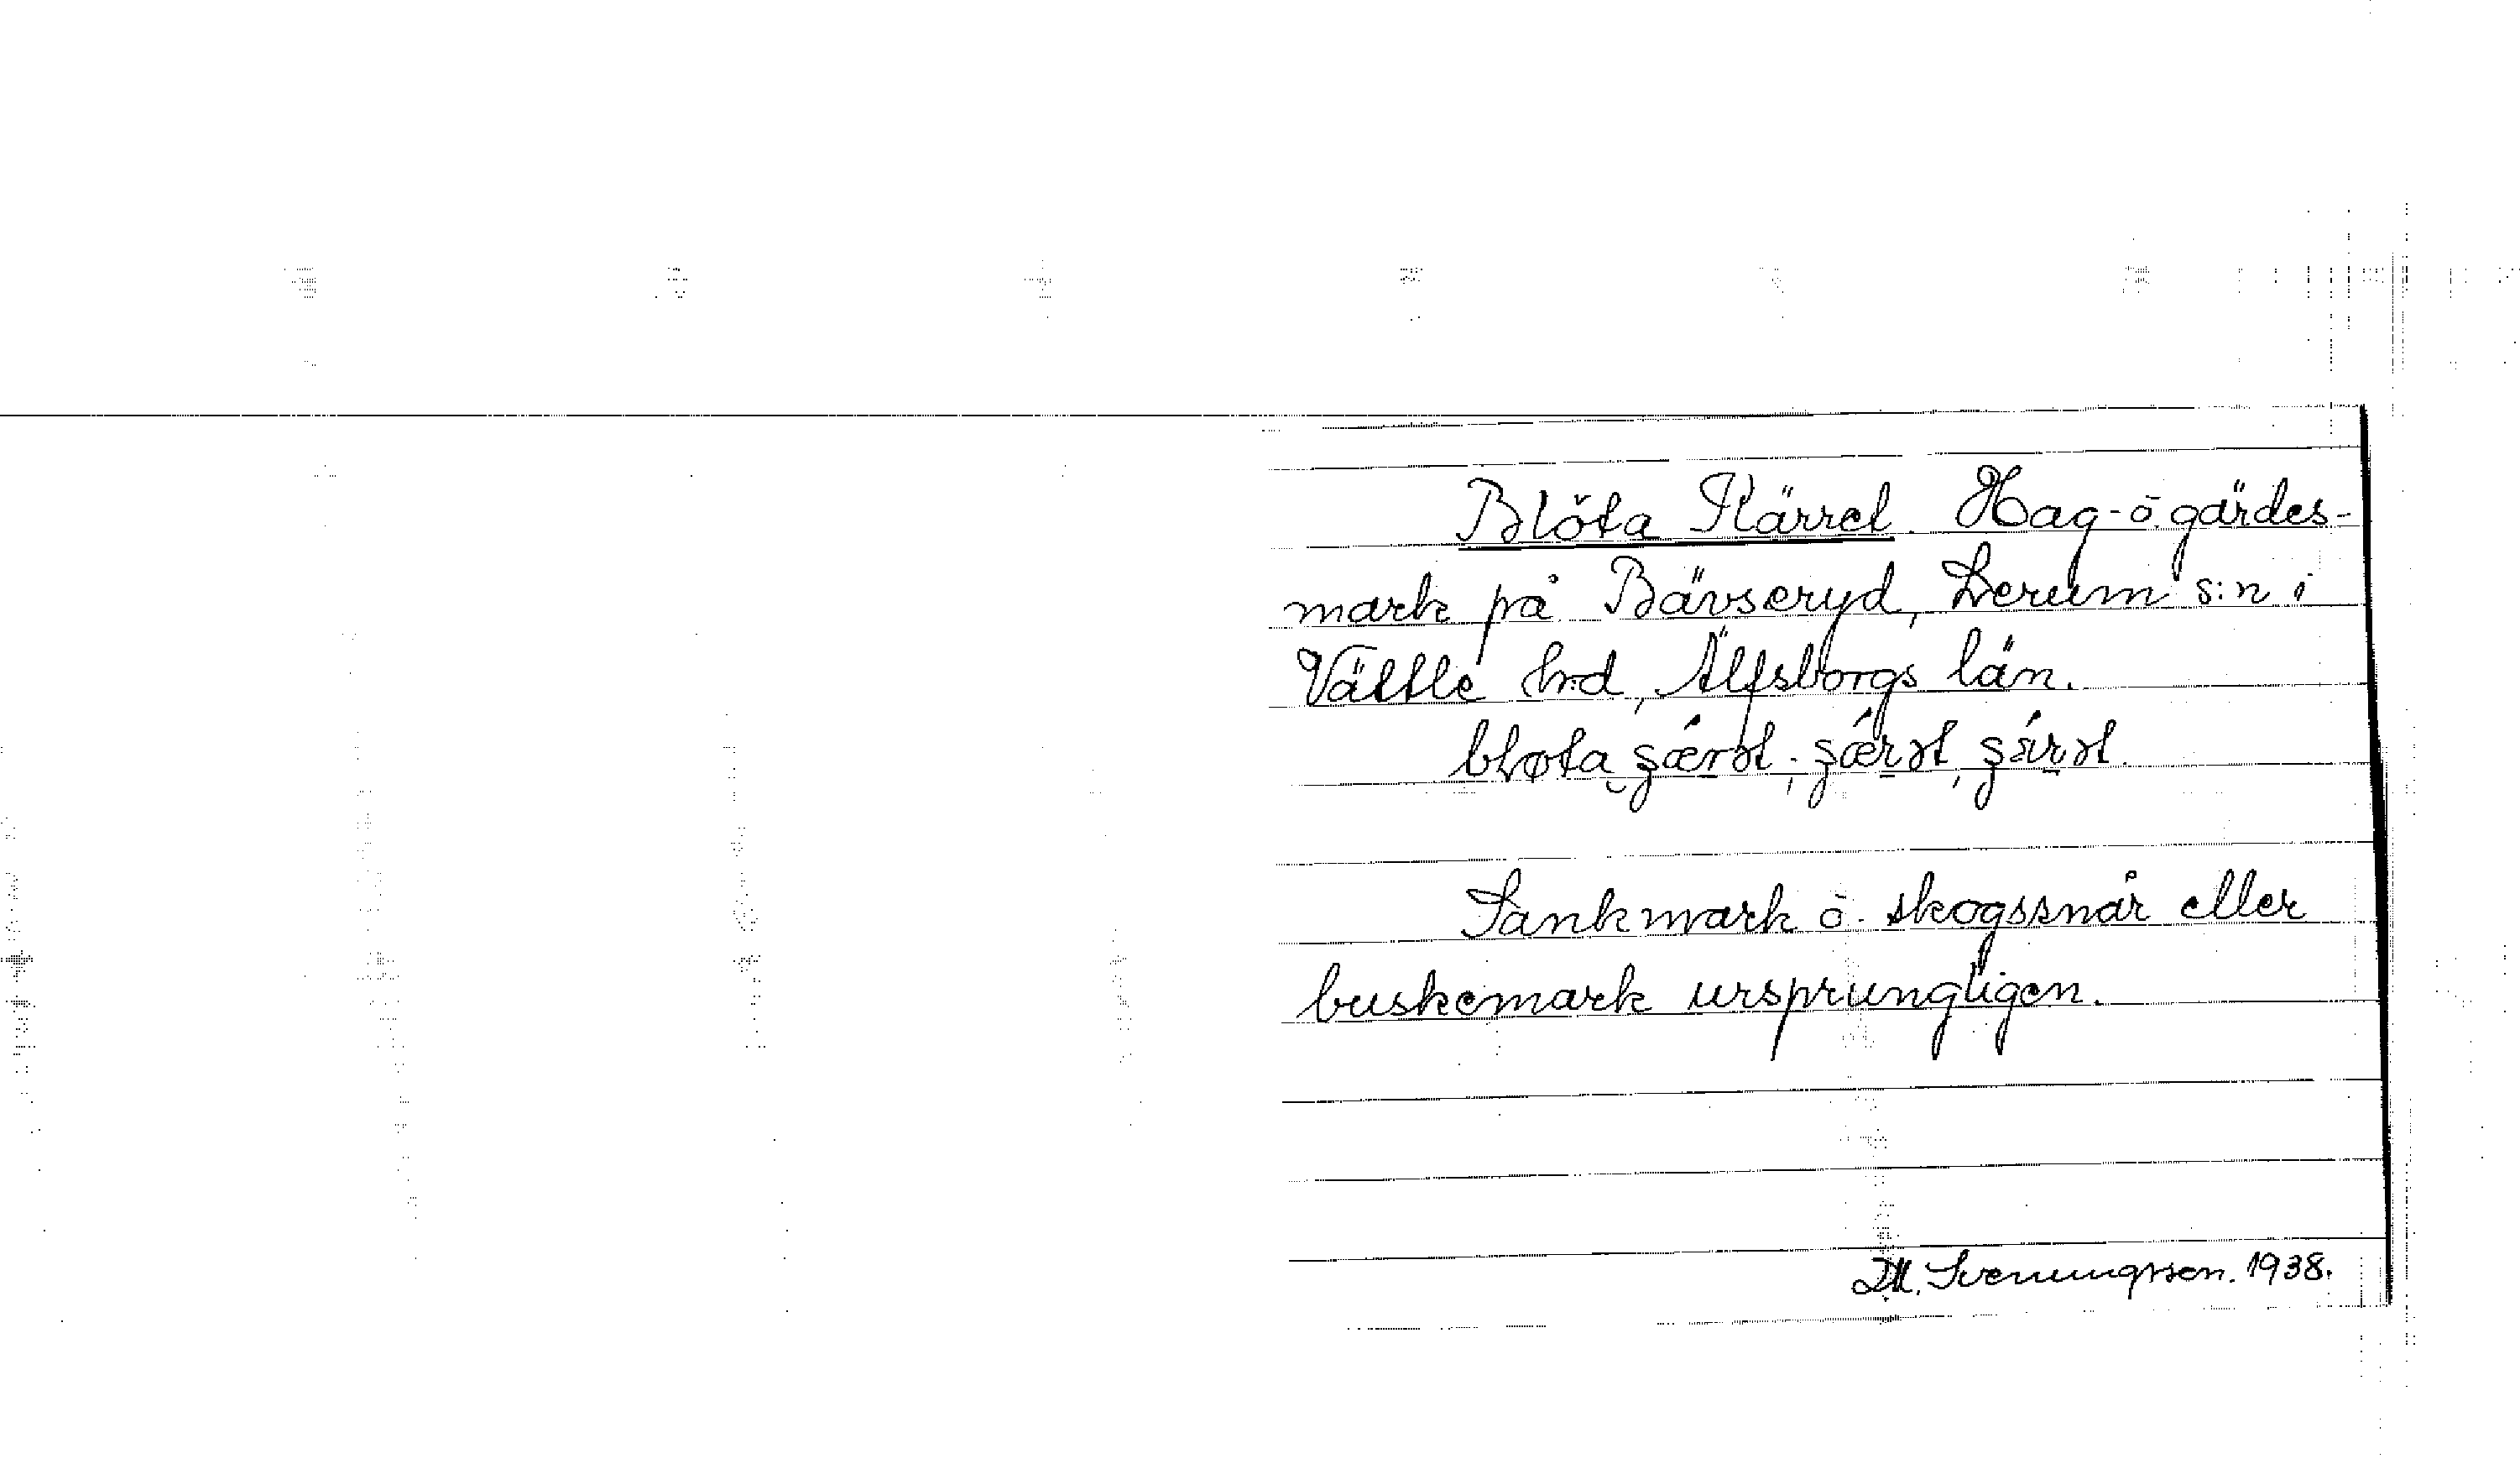 Blöta Kärret. Hag- o. gärdes-
mark på Bävseryd, Lerum s:n i
Vättle hrd, Älfsborgs län.
bløta
Sankmark o. skogssnår eller
buskemark ursprungligen.
D.M. Svenungsson. 1938.